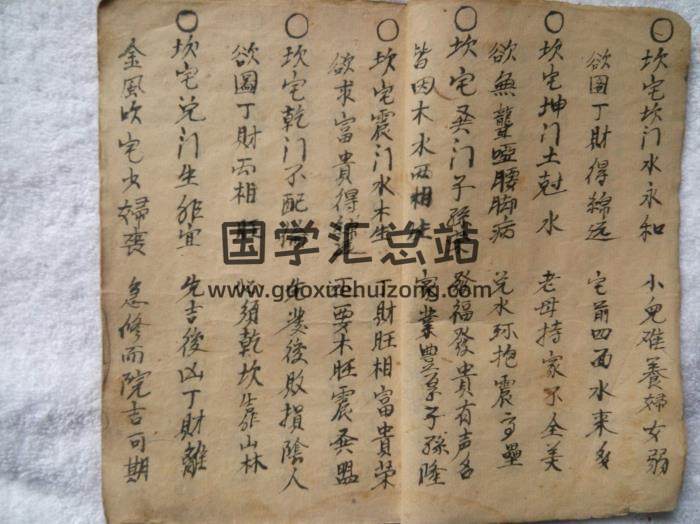 ○坎宅坎门水永和 小兒难養婦女弱
欲圖丁財得綿远 宅前四面水来多
○坎宅坤门土尅水 老母持家不全美
欲無聾啞腰脚病 兑水弥抱震高壘
○坎宅巽门子孫荣 發福發貴有声名
皆因木水两相生 家業豊享子孫隆
○坎宅震门水木生 丁財旺相富貴荣
欲求富貴得 要木旺震巽盟
○坎宅乾门不配 先發後敗損陰人
欲圖丁財两相旺 必須乾坎靠山林
○坎宅兑门生非宜 先吉後凶丁財離
金風吹宅少婦喪 急修西院吉可期
国学汇总站
www.guoxuehuizong.com